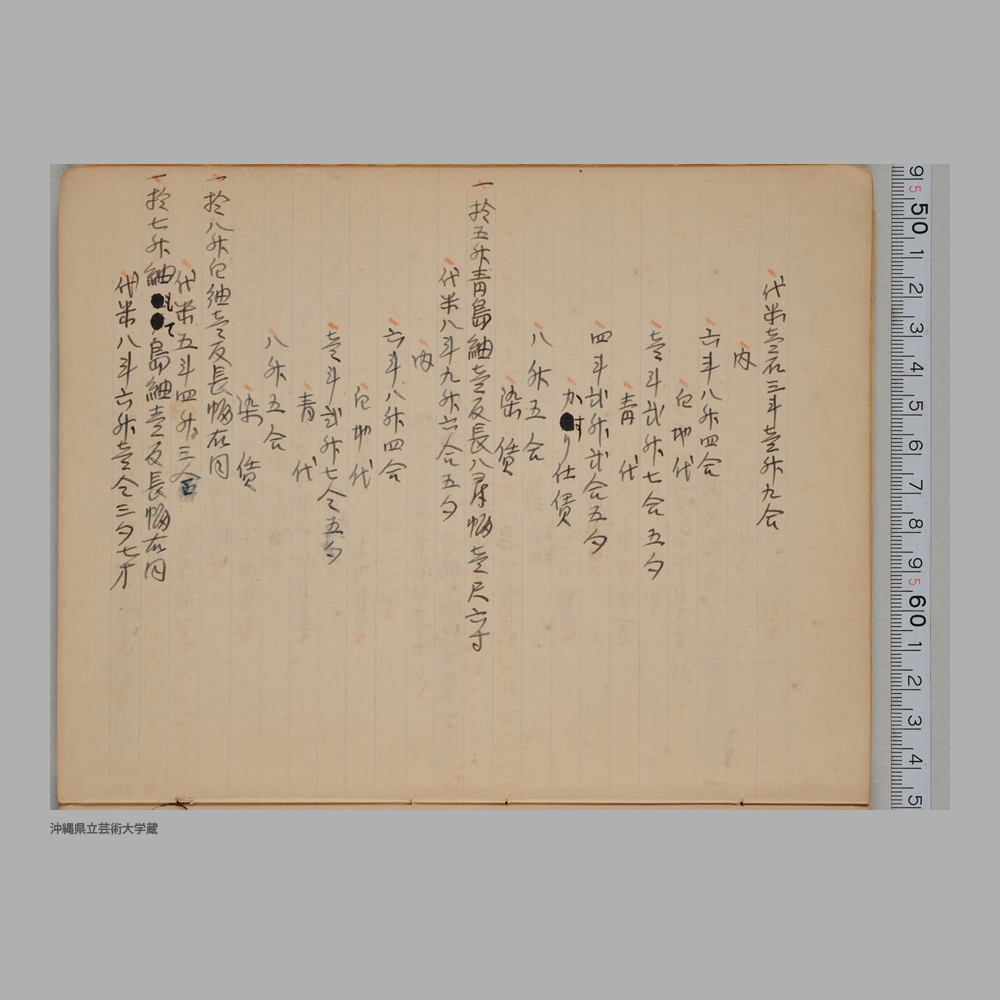 代米壱石三斗壱升九合
内
六斗八升四合
白地代
壱斗弐升七合五勺
青代
四斗弐升弐合五勺
か●すり仕賃
八升五合
染賃
一拾五升青島紬壱反長八尋幅壱尺六寸
代米八斗九升六合五勺
内
六斗八升四合
白地代
壱斗弐升七合五勺
青代
八升五合
染賃
一拾八升白紬壱反長幅右同
代米五斗四升三合
一拾七升紬●●もて島紬壱反長幅右同
代米八斗六升壱合三勺七才
沖縄県立芸術大学蔵
9 5 50 1 2 3 4 5 6 7 8 9 5 60 1 2 3 4 5